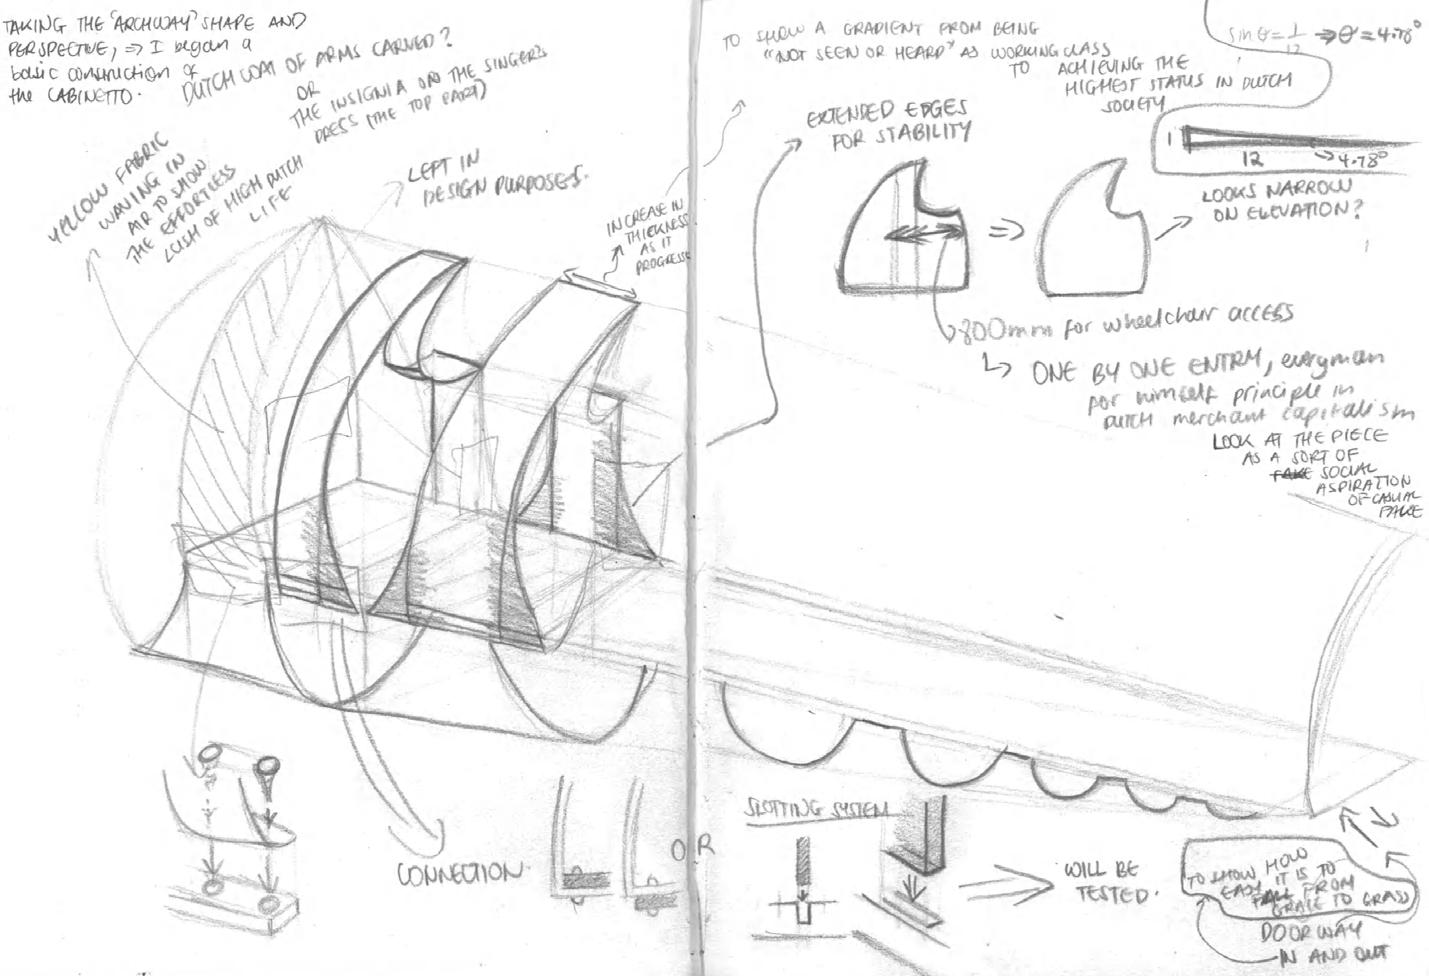 TAKING THE 'ARCHWAY' SHAPE AND
PERSPECTIVE, => I began a
basic construction of
the CABINETTO.
DUTCH COAT OF ARMS CARVED?
OR
THE INSIGNIA ON THE SINGER'S
DRESS (THE TOP PART)
YELLOW FABRIC
WAVING IN
AIR TO SHOW
THE EFFORTLESS
LUSH OF HIGH DUTCH
LIFE
LEFT IN
DESIGN PURPOSES.
INCREASE IN
THICKNESS
AS IT
PROGRESSE
TO SHOW A GRADIENT FROM BEING
"NOT SEEN OR HEARD" AS WORKING CLASS
TO ACHIEVING THE
HIGHEST STATUS IN DUTCH
SOCIETY
sin θ = 1/12 => θ = 4.78°
1
12
→ 4.78°
EXTENDED EDGES
FOR STABILITY
LOOKS NARROW
ON ELEVATION?
800mm for wheelchair access
ONE BY ONE ENTRY, everyman
for himself principle in
DUTCH merchant capitalism
LOOK AT THE PIECE
AS A SORT OF
FAKE SOCIAL
ASPIRATION
OF CASUAL
FAKE
CONNECTION.
OR
SLOTTING SYSTEM
WILL BE
TESTED.
TO SHOW HOW
EASY IT IS TO
FALL FROM
GRACE TO GRASS
DOORWAY
IN AND OUT